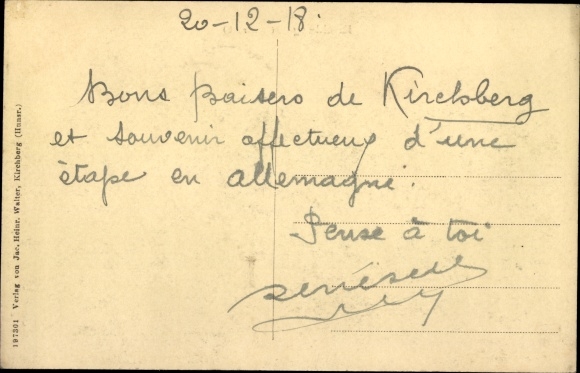 20-12-18.
Bons baisers de Kirchberg
et souvenir affectueux d'une
étape en Allemagne.
Pense à toi
197301 Verlag von Jac. Heinr. Walter, Kirchberg (Hunsr.)